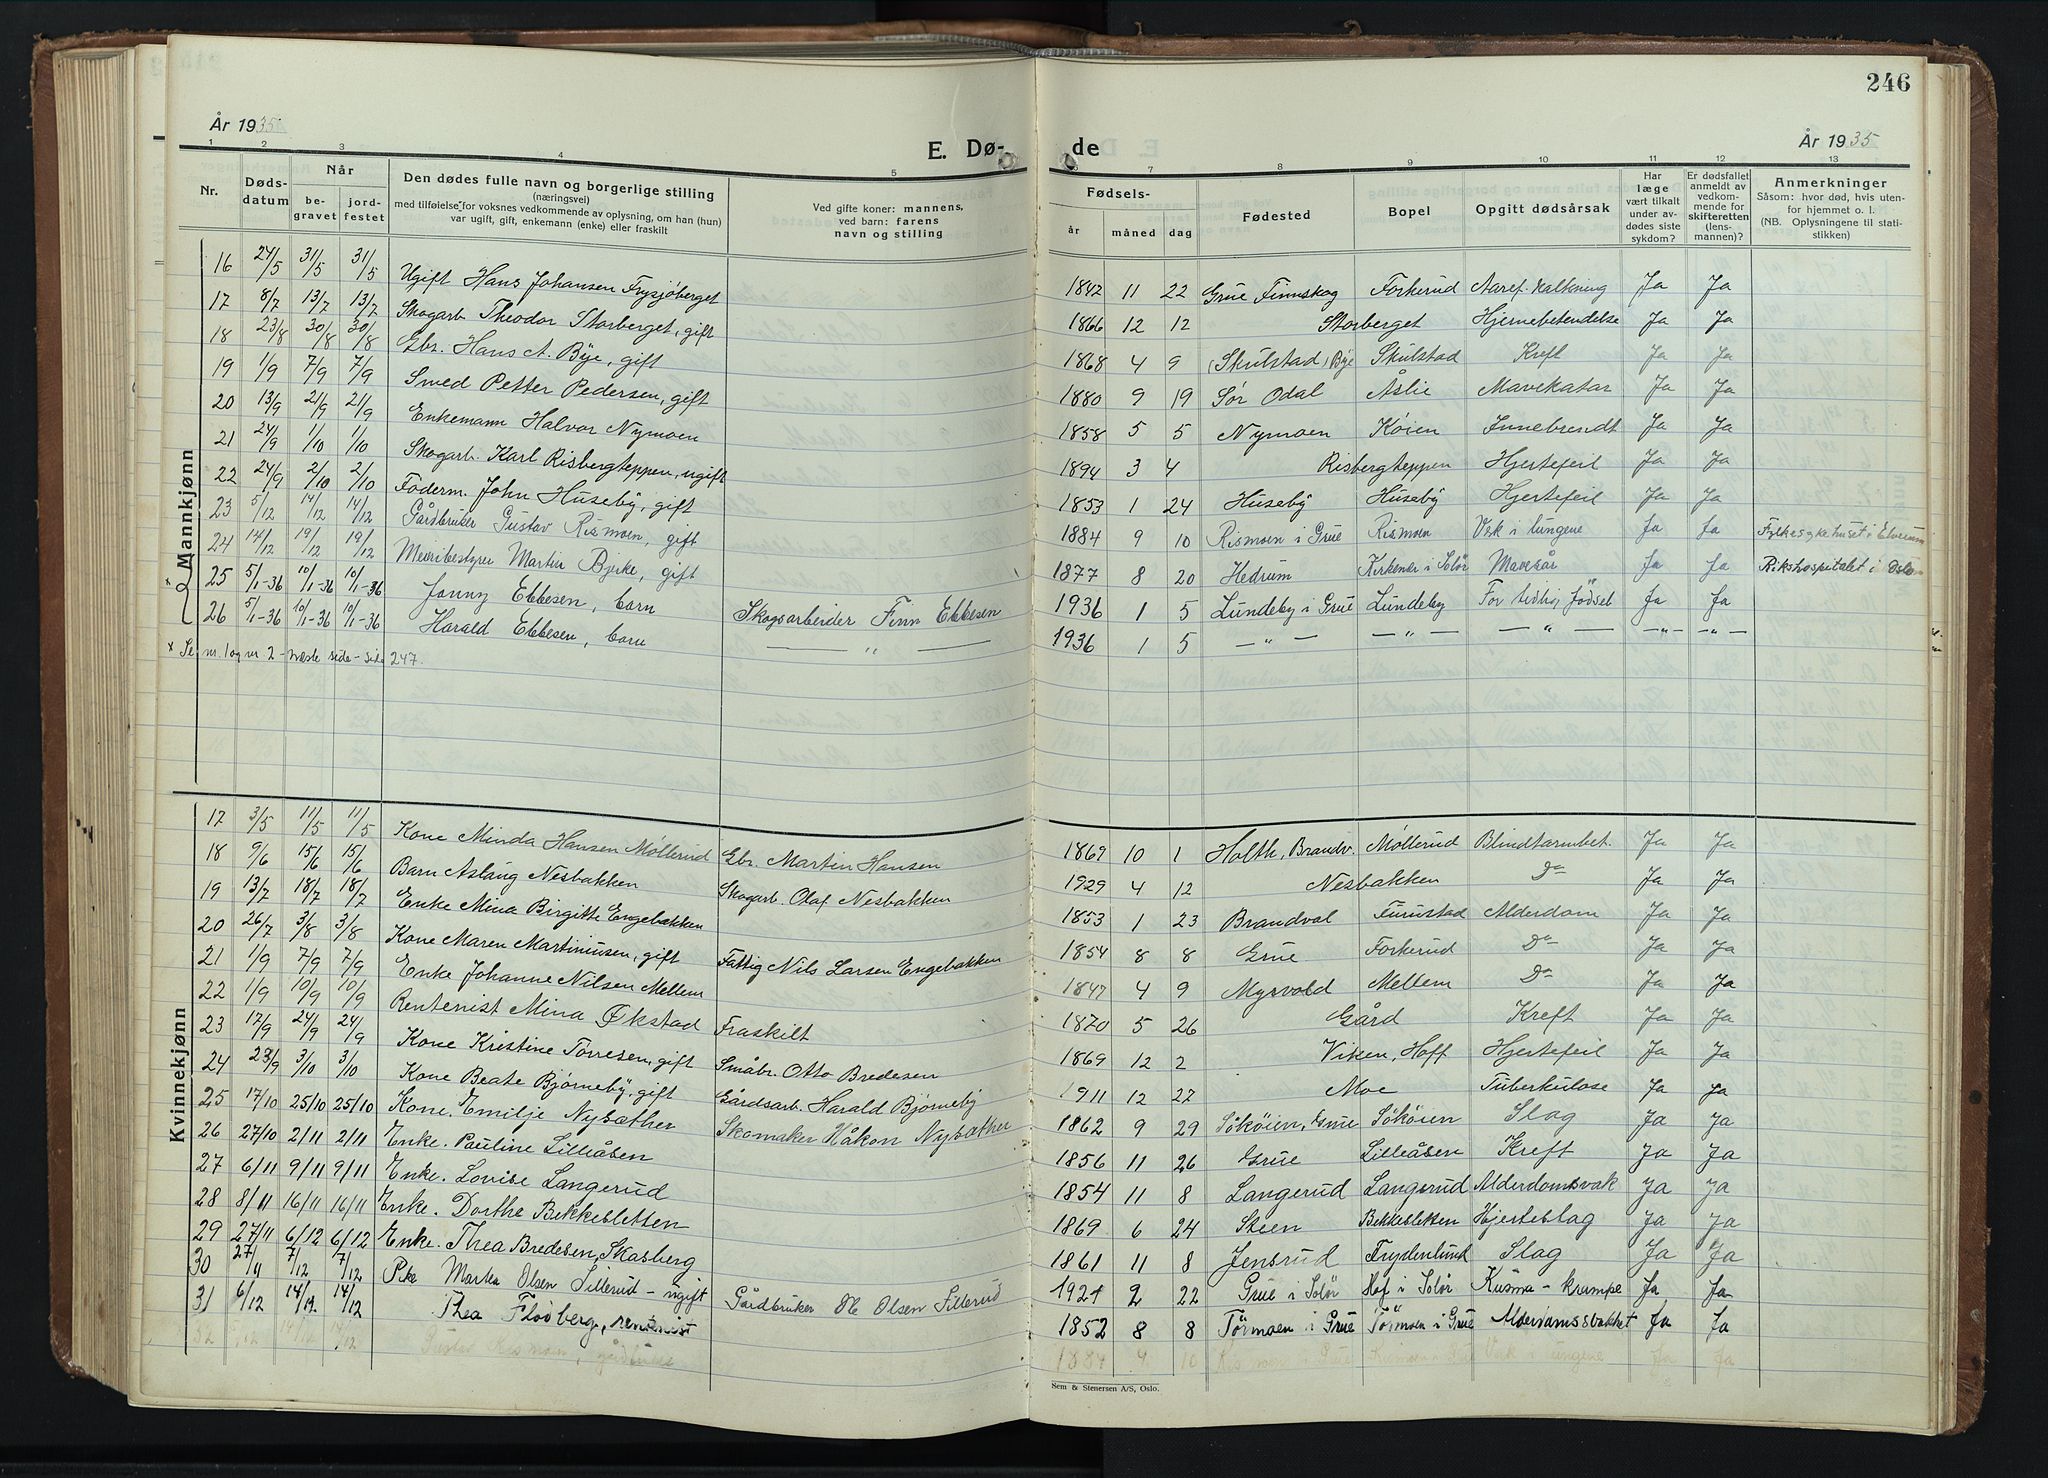 246
År 1935
E. Dø-
de
År 1935
1 2 3 4 5 6 7 8 9 10 11 12 13
Nr.
Døds-
datum
Når
be-
gravet
jord-
festet
Den dødes fulle navn og borgerlige stilling
(næringsvei)
med tilføielse for voksnes vedkommende av oplysning, om han (hun)
var ugift, gift, enkemann (enke) eller fraskilt
Ved gifte koner: mannens,
ved barn: farens
navn og stilling
Fødsels-
år
måned
dag
Fødested
Bopel
Opgitt dødsårsak
Har
læge
vært tilkalt
under av-
dødes siste
sykdom?
Er dødsfallet
anmeldt av
vedkom-
mende for
skifteretten
(lens-
mannen)?
Anmerkninger
Såsom: hvor død, hvis uten-
for hjemmet o. l.
(NB. Oplysningene til stati-
stikken)
Mannkjønn
16 24/5 31/5 31/5 Ugift Hans Johansen Frysjøberget 1842 11 22 Grue Finnskog Forkerud Aaref. kalkning Ja Ja
17 8/7 13/7 13/7 Skogarb. Theodor Storberget, gift 1866 12 12 Storberget Hjernebetendelse Ja Ja
18 23/8 30/8 30/8 Gbr. Hans A. Bye, gift 1868 4 9 (Skulstad) Bye Skulstad Kreft Ja Ja
19 1/9 7/9 7/9 Smed Petter Pedersen, gift 1880 9 19 Sør Odal Åslie Mavekatar Ja Ja
20 13/9 21/9 21/9 Enkemann Halvor Nymoen 1858 5 5 Nymoen Køien Innebrendt Ja Ja
21 24/9 1/10 1/10 Skogarb. Karl Risbergteppen, ugift 1894 3 4 Risbergteppen Hjertefeil Ja Ja
22 24/9 2/10 2/10 Føderm. John Huseby, gift 1853 1 24 Huseby Huseby Hjertefeil Ja Ja
23 5/12 14/12 14/12 Gårdbruker Gustav Rismoen, gift 1884 9 10 Rismoen i Grue Rismoen Vek i lungene Ja Ja Fylkesykehuset i Elverum
24 14/12 19/12 19/12 Meieribestyrer Martin Bjerke, gift 1877 8 20 Hedrum Kirkenær i Solør Mavesår Ja Ja Rikshospitalet i Oslo
x 25 5/1-36 10/1-36 10/1-36 Jonny Ebbesen, barn Skogsarbeider Finn Ebbesen 1936 1 5 Lundeby i Grue Lundeby For tidlig fødsel Ja Ja
26 5/1-36 10/1-36 10/1-36 Harald Ebbesen, barn — " — 1936 1 5 — " — — " — — " — — " — — " —
x Se nr. 1 og nr 2 - næste side - side 247.
Kvinnekjønn
17 3/5 11/5 11/5 Kone Minda Hansen Møllerud Gbr. Martin Hansen 1869 10 1 Holth, Brandv. Møllerud Blindtarmbet. Ja Ja
18 9/6 15/6 15/6 Barn Aslaug Nesbakken Skogarb. Olaf Nesbakken 1929 4 12 Nesbakken Do Ja Ja
19 13/7 18/7 18/7 Enke Mina Birgitte Engebakken 1853 1 23 Brandval Furustad Alderdom Ja Ja
20 26/7 3/8 3/8 Kone Maren Martiniusen, gift Fattig Nils Larsen Engebakken 1854 8 8 Grue Forkerud Do Ja Ja
21 1/9 7/9 7/9 Enke Johanne Nilsen Mellem 1847 4 9 Myrvold Mellem Do Ja Ja
22 1/9 10/9 10/9 Rentenist Mina Økstad Fraskilt 1870 5 26 Gård Kreft Ja Ja
23 17/9 24/9 24/9 Kone Kristine Tørresen, gift Småbr. Otto Bredesen 1869 12 2 Viken, Hoff Hjertefeil Ja Ja
24 23/9 3/10 3/10 Kone Beate Bjørneby, gift Gårdsarb. Harald Bjørneby 1911 12 27 Moe Tuberkulose Ja Ja
25 17/10 25/10 25/10 Kone. Emilje Nysæther Skomaker Håkon Nysæther 1862 9 29 Søkøien, Grue Søkøien Slag Ja Ja
26 27/10 2/11 2/11 Enke. Pauline Lilleåsen 1856 11 26 Grue Lilleåsen Kreft Ja Ja
27 6/11 9/11 9/11 Enke. Lovise Langerud 1854 11 8 Langerud Langerud Alderdomsvak Ja Ja
28 8/11 16/11 16/11 Enke. Dorthe Bekkesletten 1869 6 24 Steen Bekkesletten Hjerteslag Ja Ja
29 27/11 6/12 6/12 Enke. Thea Bredesen, Skasberg 1861 11 8 Jensrud Frydenlund Slag Ja Ja
30 27/11 7/12 7/12 Pke Martea Olsen Sillerud - ugift Gårdbruker Ole Olsen Sillerud 1921 2 22 Grue i Solør Hof i Solør Kusma - krampe Ja Ja
31 6/12 14/12 14/12 Thea Flodberg, rentenist 1852 8 8 Tørmoen i Grue Tørmoen i Grue Alderdomssvakhet Ja Ja
32 5/12 14/12 14/12 Gustav Rismoen, gårdbruker 1884 9 10 Rismoen i Grue Rismoen i Grue Vek i lungene Ja Ja
Sem & Stenersen A/S, Oslo.